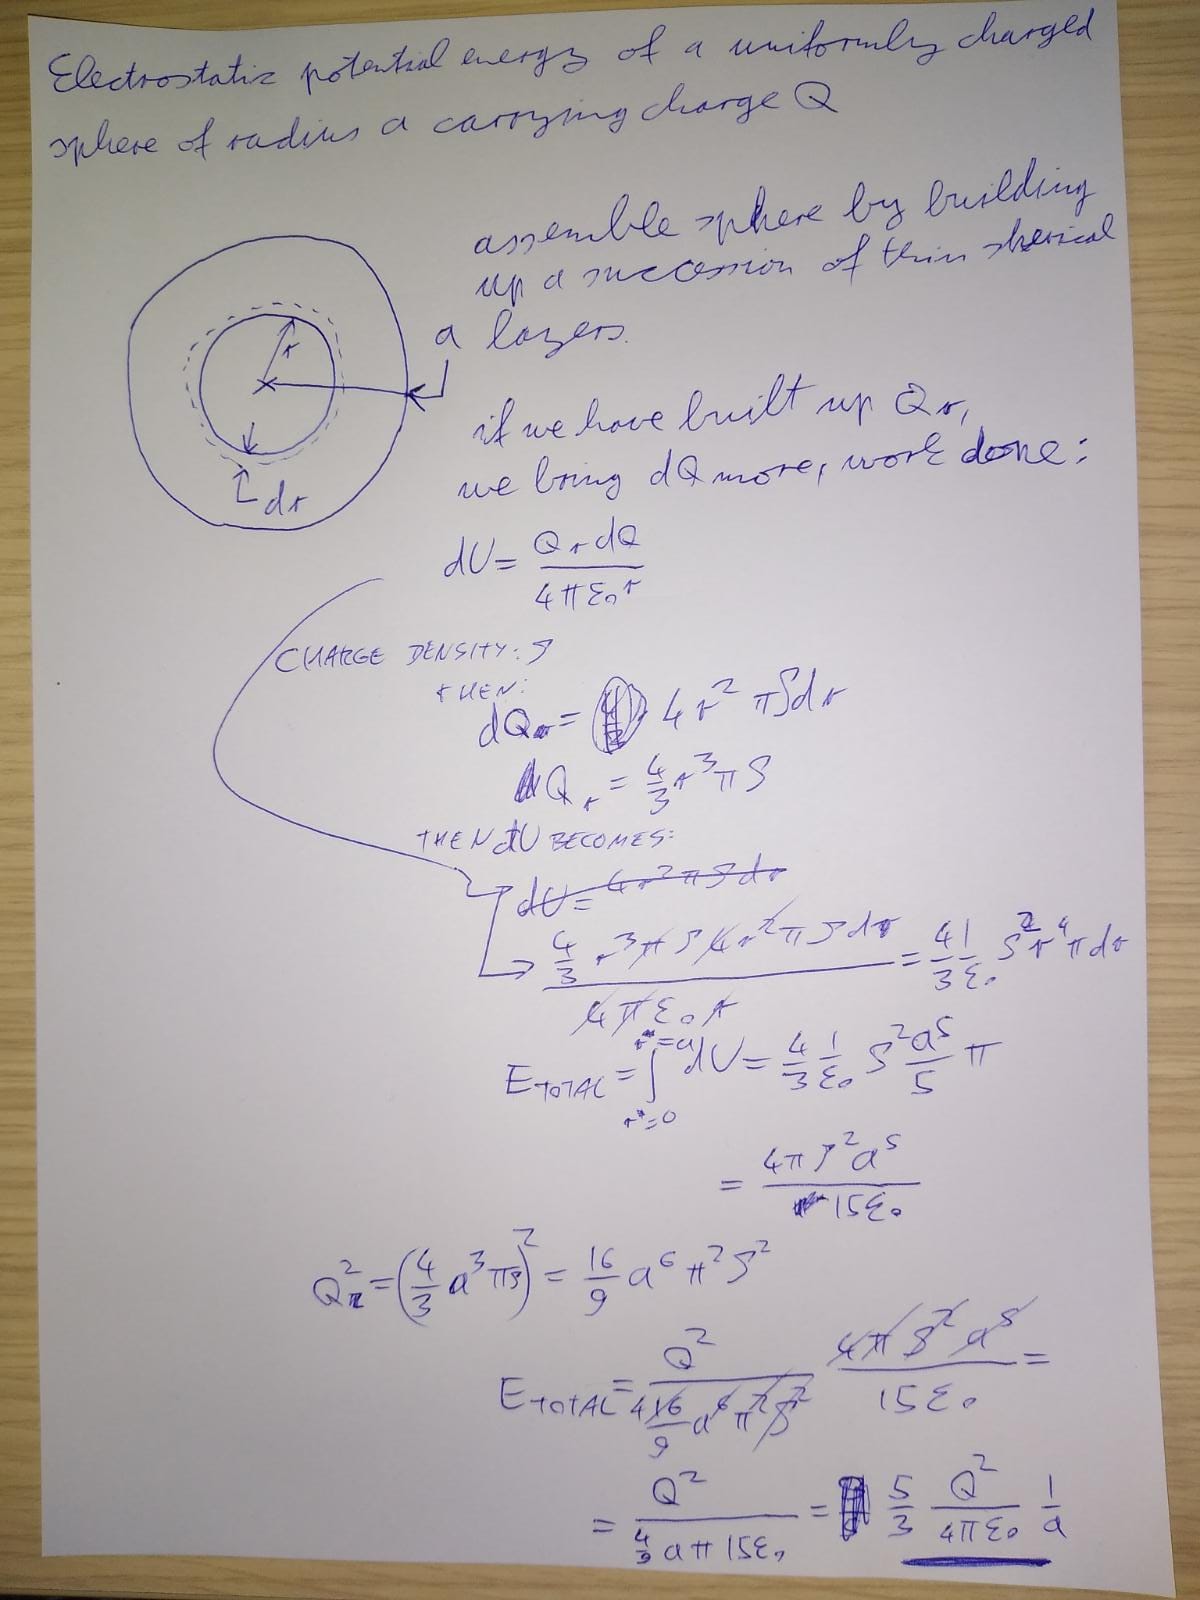 Electrostatic potential energy of a uniformly charged
sphere of radius a carrying charge Q
assemble sphere by building
up a succession of thin sherical
a layers.
r
dr
if we have built up Q_r,
we bring dQ more, work done:
dU = Q_r dQ / 4πε₀r
CHARGE DENSITY: ρ
THEN:
dQ = 4r²πρdr
Q_r = 4/3 r³πρ
THEN dU BECOMES:
dU = 4r²πρdr
(4/3 r³πρ 4r²πρdr) / (4πε₀r) = 4/3 1/ε₀ ρ²r⁴πdr
E_TOTAL = ∫_{r=0}^{r=a} dU = 4/3 1/ε₀ ρ² a⁵/5 π
= 4πρ²a⁵ / 15ε₀
Q² = (4/3 a³πρ)² = 16/9 a⁶π²ρ²
E_TOTAL = Q² / (4 16/9 a⁶π²ρ²) 4πρ²a⁵ / 15ε₀ =
= Q² / (4/9 aπ 15ε₀) = 5/3 Q²/4πε₀ 1/a